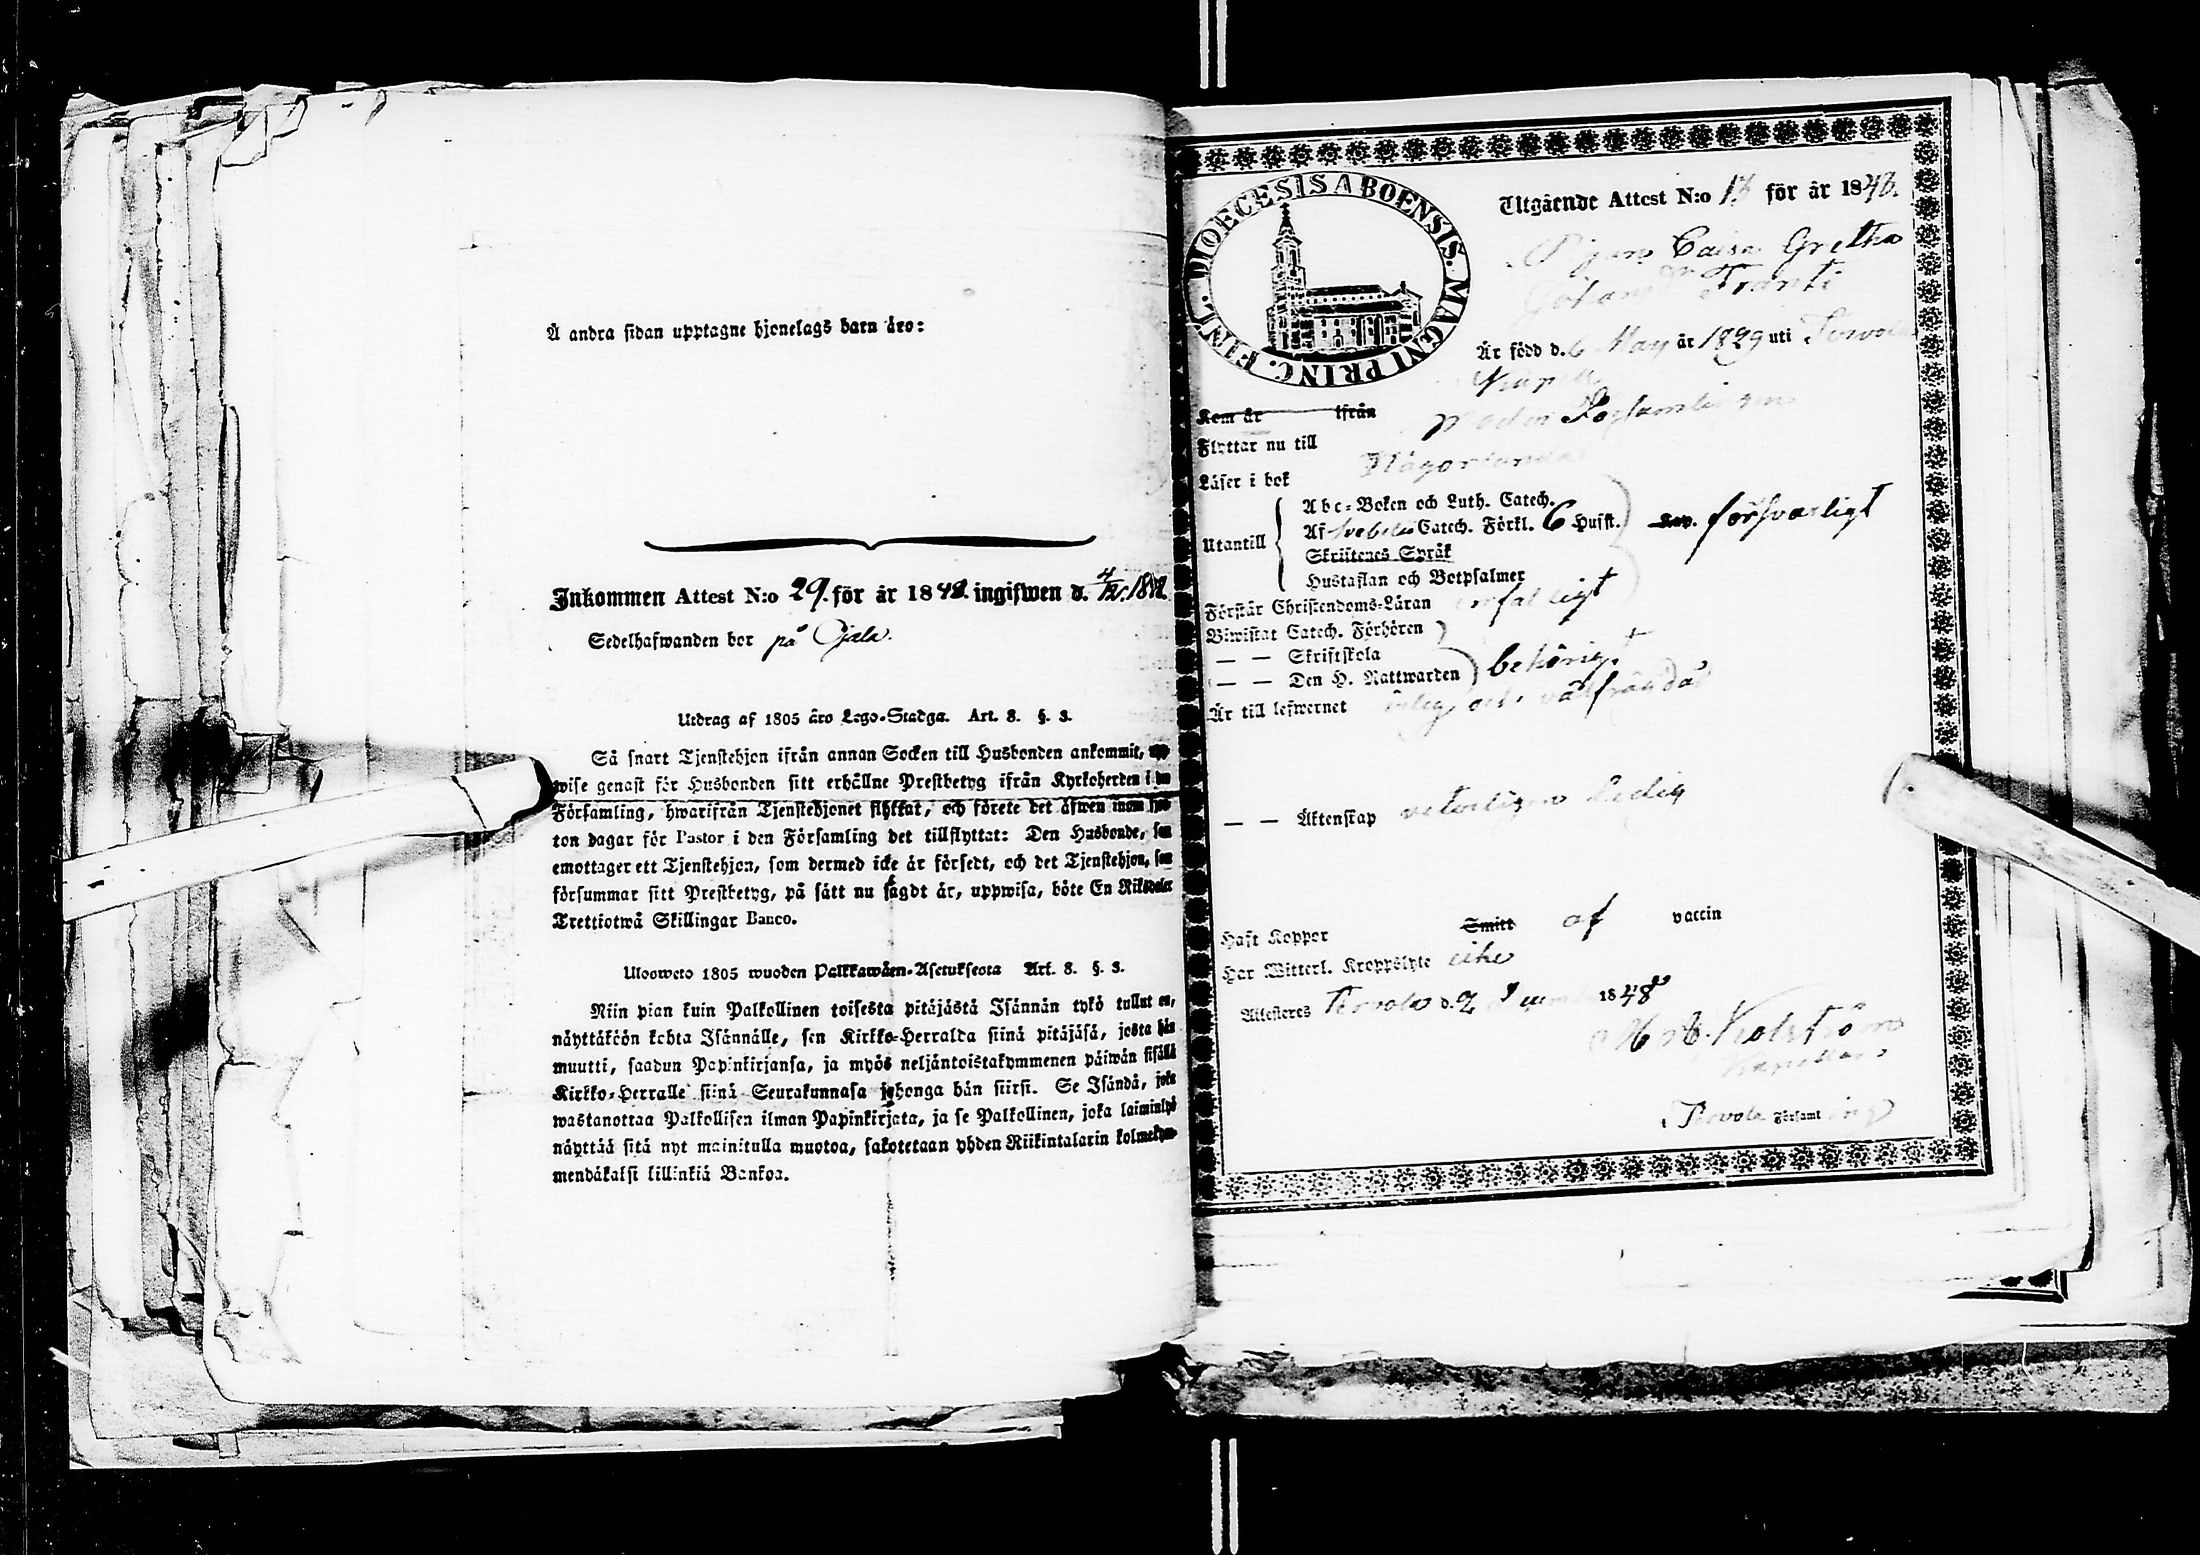 Å andra sidan upptagne hjonelags barn äro:
Inkommen Attest N:o 29. för år 1848. ingifwen d. 4/12. 1848.
Sedelhafwanden bor på Ojala.
Utdrag af 1805 års Lego-Stadga. Art. 8. §. 3.
Så snart Tjenstehjon ifrån annan Socken till Husbonden ankommit, upp
wise genast för Husbonden sitt erhållne Prestbetyg ifrån Kyrkoherden i den
Församling, hwarifrån Tjenstehjonet flyttat, och förete det äfwen inom
ton dagar för Pastor i den Församling det tillflyttat: Den Husbonde, som
emottager ett Tjenstehjon, som dermed icke är försedt, och det Tjenstehjon, som
försummar sitt Prestbetyg, på sätt nu sagdt är, uppwisa, böte En Riksdaler
Trettiotwå Skillingar Banco.
Ulosweto 1805 wuoden Palkkawäen-Asetuksesta Art. 8. §. 3.
Niin pian kuin Palkollinen toisesta pitäjästä Isännän tykö tullut on,
näyttäköön kohta Isännälle, sen Kirkko-Herralda siinä pitäjäsä, josta hän
muutti, saadun Papinkirjansa, ja myös neljäntoistakymmenen päiwän sisällä
Kirkko-Herralle siinä Seurakunnasa johonga hän siirsi. Se Isändä, joka
wastanottaa Palkollisen ilman Papinkirjata, ja se Palkollinen, joka laiminlyö
näyttää sitä nyt mainitulla muotoa, sakotetaan yhden Riikintalarin kolmekym-
mendäkaksi killinkiä Bankoa.
DIOECESIS ABOENSIS. MAGNI PRINC. FINL.
Utgående Attest N:o 13 för år 1848.
Pigan Caisa Gretha
Johans Dr Tranti
Är född d. 6 May år 1829 uti Terwola
Kapell
Kom år ifrån
Flyttar nu till moder Församlingen
Läser i bok Någorlunda
Utantill
Abc-Boken och Luth. Catech.
Af Svebelii Catech. Förkl. 6 Hufst. försvarligt
Skriftenes Språk
Hustaflan och Botpsalmer
Förstår Christendoms-Läran enfaldigt
Biwistat Catech. Förhören
— — Skriftskola
— — Den H. Nattwarden behörigt
Är till lefwernet ärlig och välfrändad
— — Äktenskap veterligen Ledig
Haft Koppor Smitt af vaccin
Har Witterl. Kroppslyte icke
Attesteras Terwola d. 2 1848
Kapellan
Terwola Församling